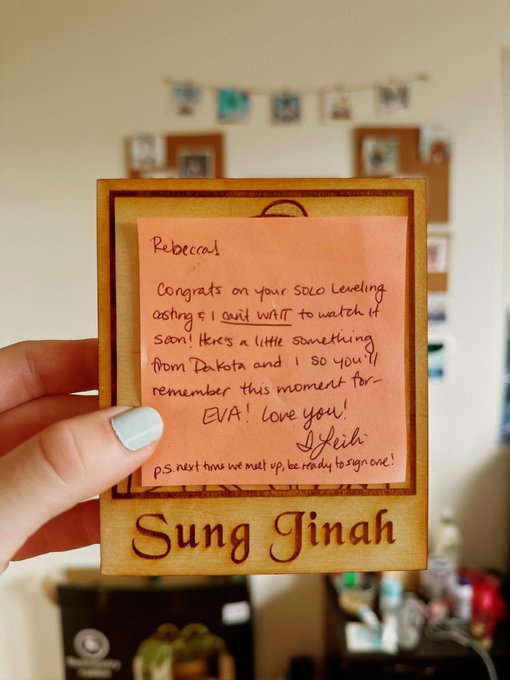 Rebecca!
Congrats on your SOLO Leveling
casting & I can't WAIT to watch it
soon! Here's a little something
from Dakota and I so you'll
remember this moment for-
EVA! Love you!
Leihi
p.s. next time we meet up, be ready to sign one!
Sung Jinah